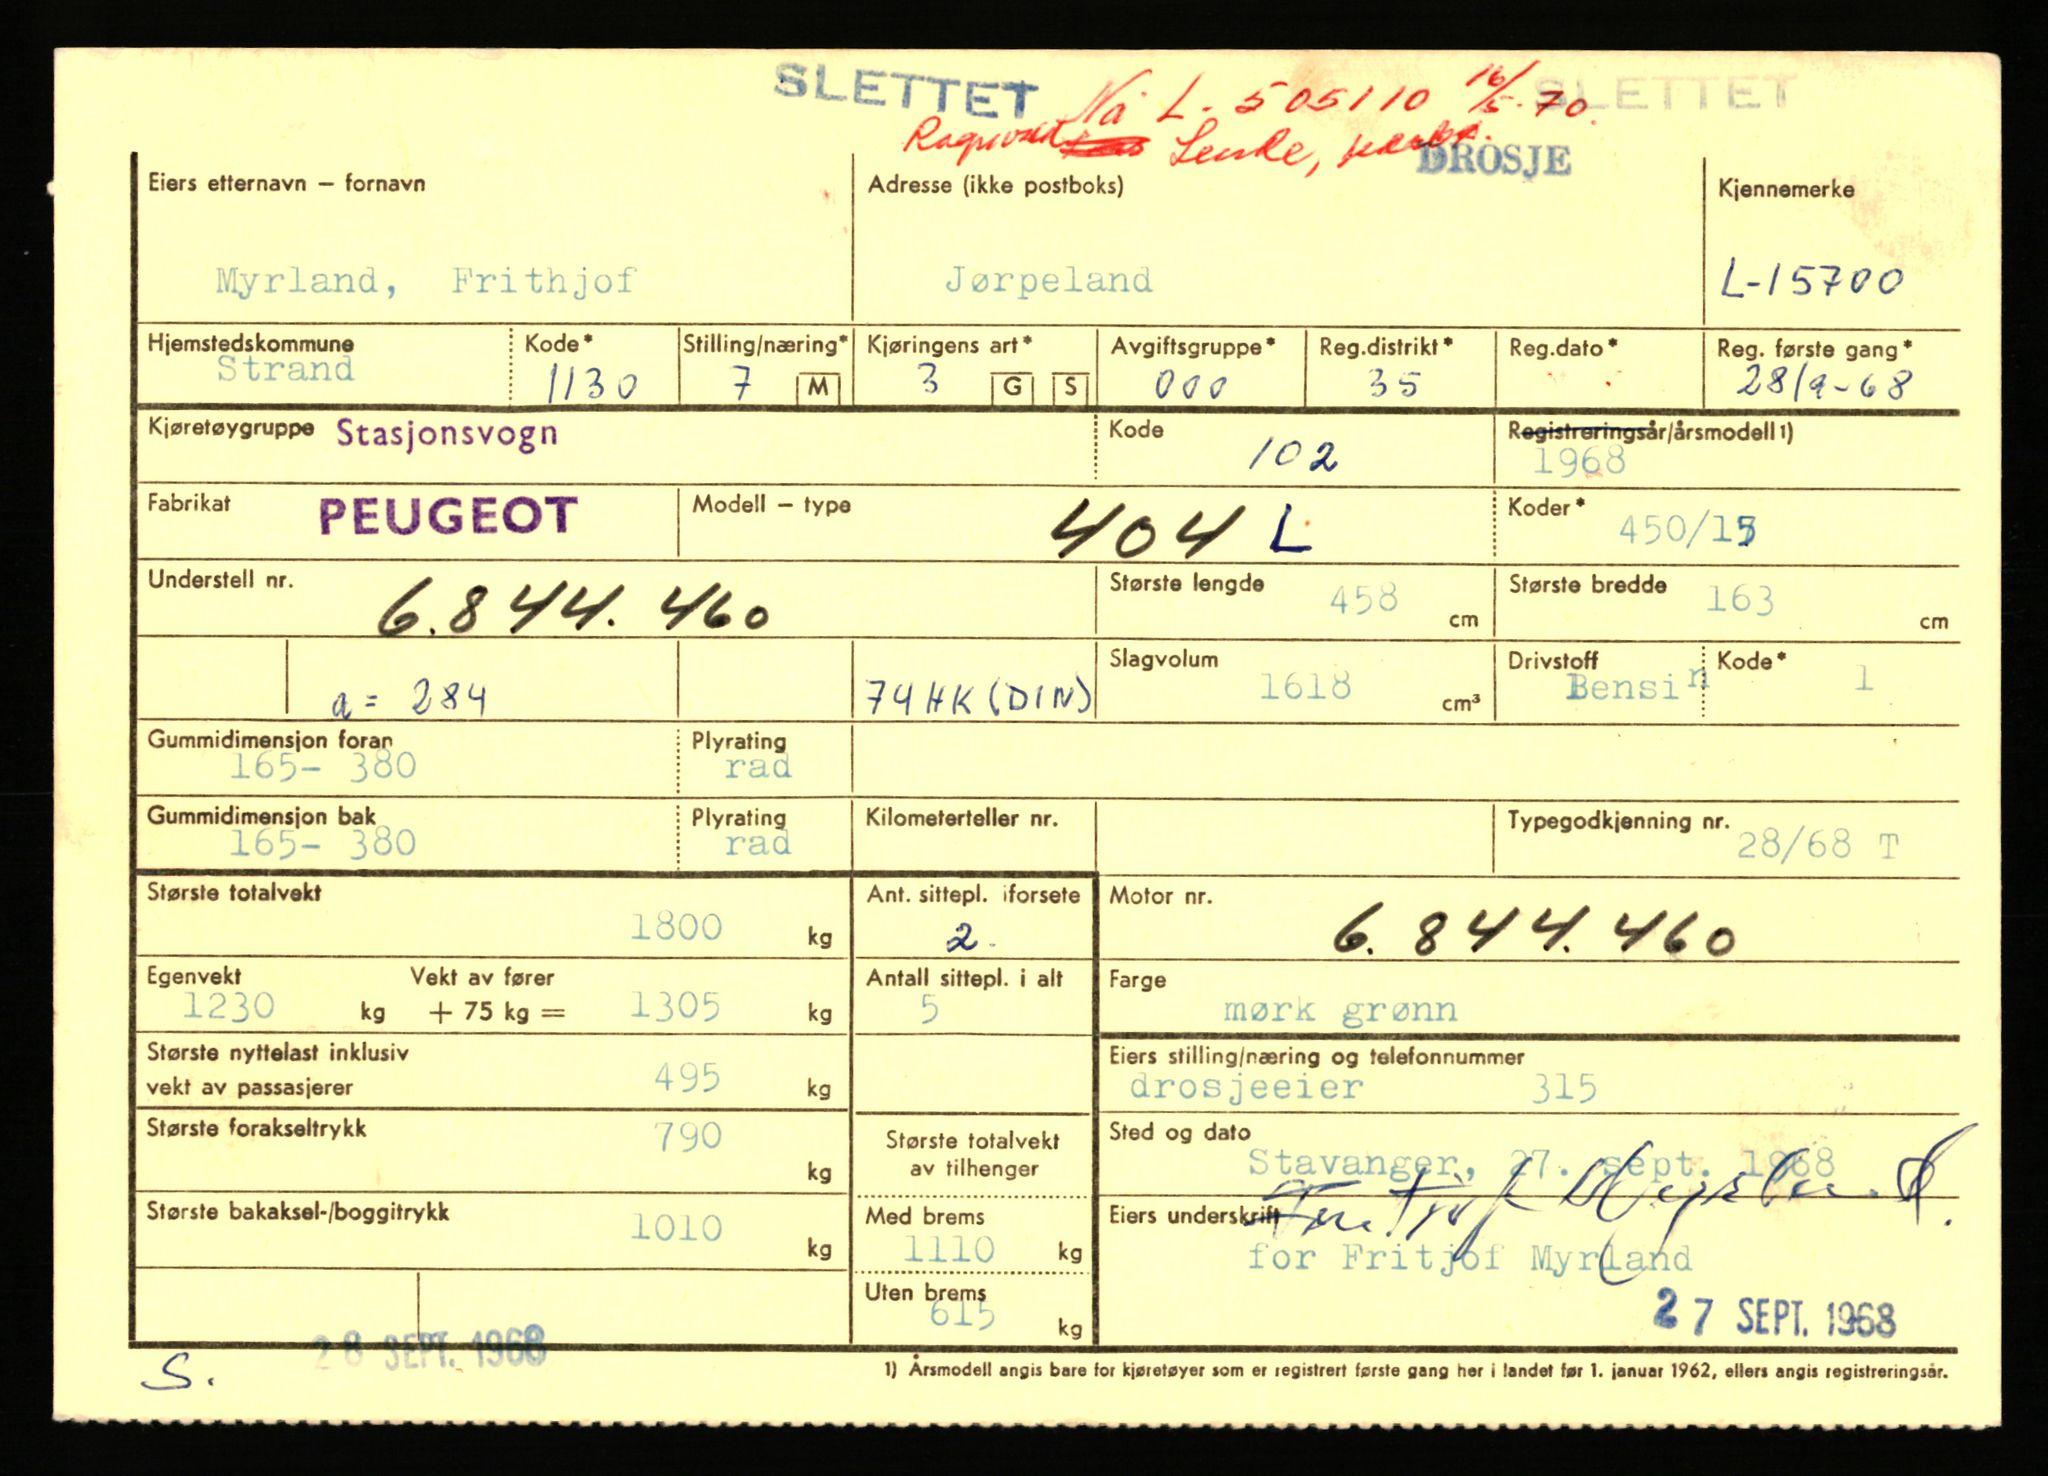 SLETTET Nå L- 505110 16/5-70. SLETTET
Ragnvald Lende, DROSJE
Eiers etternavn – fornavn Adresse (ikke postboks) Kjennemerke
Myrland, Frithjof Jørpeland L-15700
Hjemstedskommune Kode* Stilling/næring* Kjøringens art* Avgiftsgruppe* Reg.distrikt* Reg.dato* Reg. første gang*
Strand 1130 7 M 3 G S 000 35 28/9-68
Kjøretøygruppe Stasjonsvogn Kode 102 Registreringsår/årsmodell 1)
1968
Fabrikat PEUGEOT Modell – type 404 L Koder* 450/15
Understell nr. 6.844.460 Største lengde 458 cm Største bredde 163 cm
a = 284 74 HK (DIN) Slagvolum 1618 cm³ Drivstoff Bensin Kode* 1
Gummidimensjon foran Plyrating
165- 380 rad
Gummidimensjon bak Plyrating Kilometerteller nr. Typegodkjenning nr.
165- 380 rad 28/68 T
Største totalvekt 1800 kg Ant. sittepl. i forsete 2 Motor nr. 6.844.460
Egenvekt Vekt av fører Antall sittepl. i alt Farge
1230 kg + 75 kg = 1305 kg 5 mørk grønn
Største nyttelast inklusiv Eiers stilling/næring og telefonnummer
vekt av passasjerer 495 kg drosjeeier 315
Største forakseltrykk 790 kg Største totalvekt Sted og dato
av tilhenger Stavanger, 27. sept. 1968
Største bakaksel-/boggitrykk 1010 kg Med brems Eiers underskrift
1110 kg for Fritjof Myrland
Uten brems
615 kg 27 SEPT. 1968
28 SEPT. 1968
S. 1) Årsmodell angis bare for kjøretøyer som er registrert første gang her i landet før 1. januar 1962, ellers angis registreringsår.